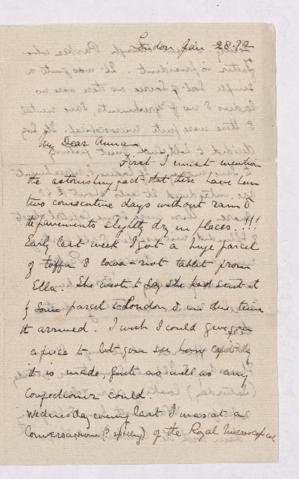 London Jan 28. 92
My Dear Anna
First I must mention
the astonishing fact that there have been
two consecutive days without rain &
the pavements slightly dry in places.!!!
Early last week I got a huge parcel
of toffee & cocoa-nut tablet from
Ella. She wrote to say she had sent it
& some parcel to London & in due time
it arrived. I wish I could give you
a piece to let you see how
it is made quite as well as any
Confectioner could.
Wednesday evening last I was at a
Conversazione (? spelling) of the Royal Microscopical